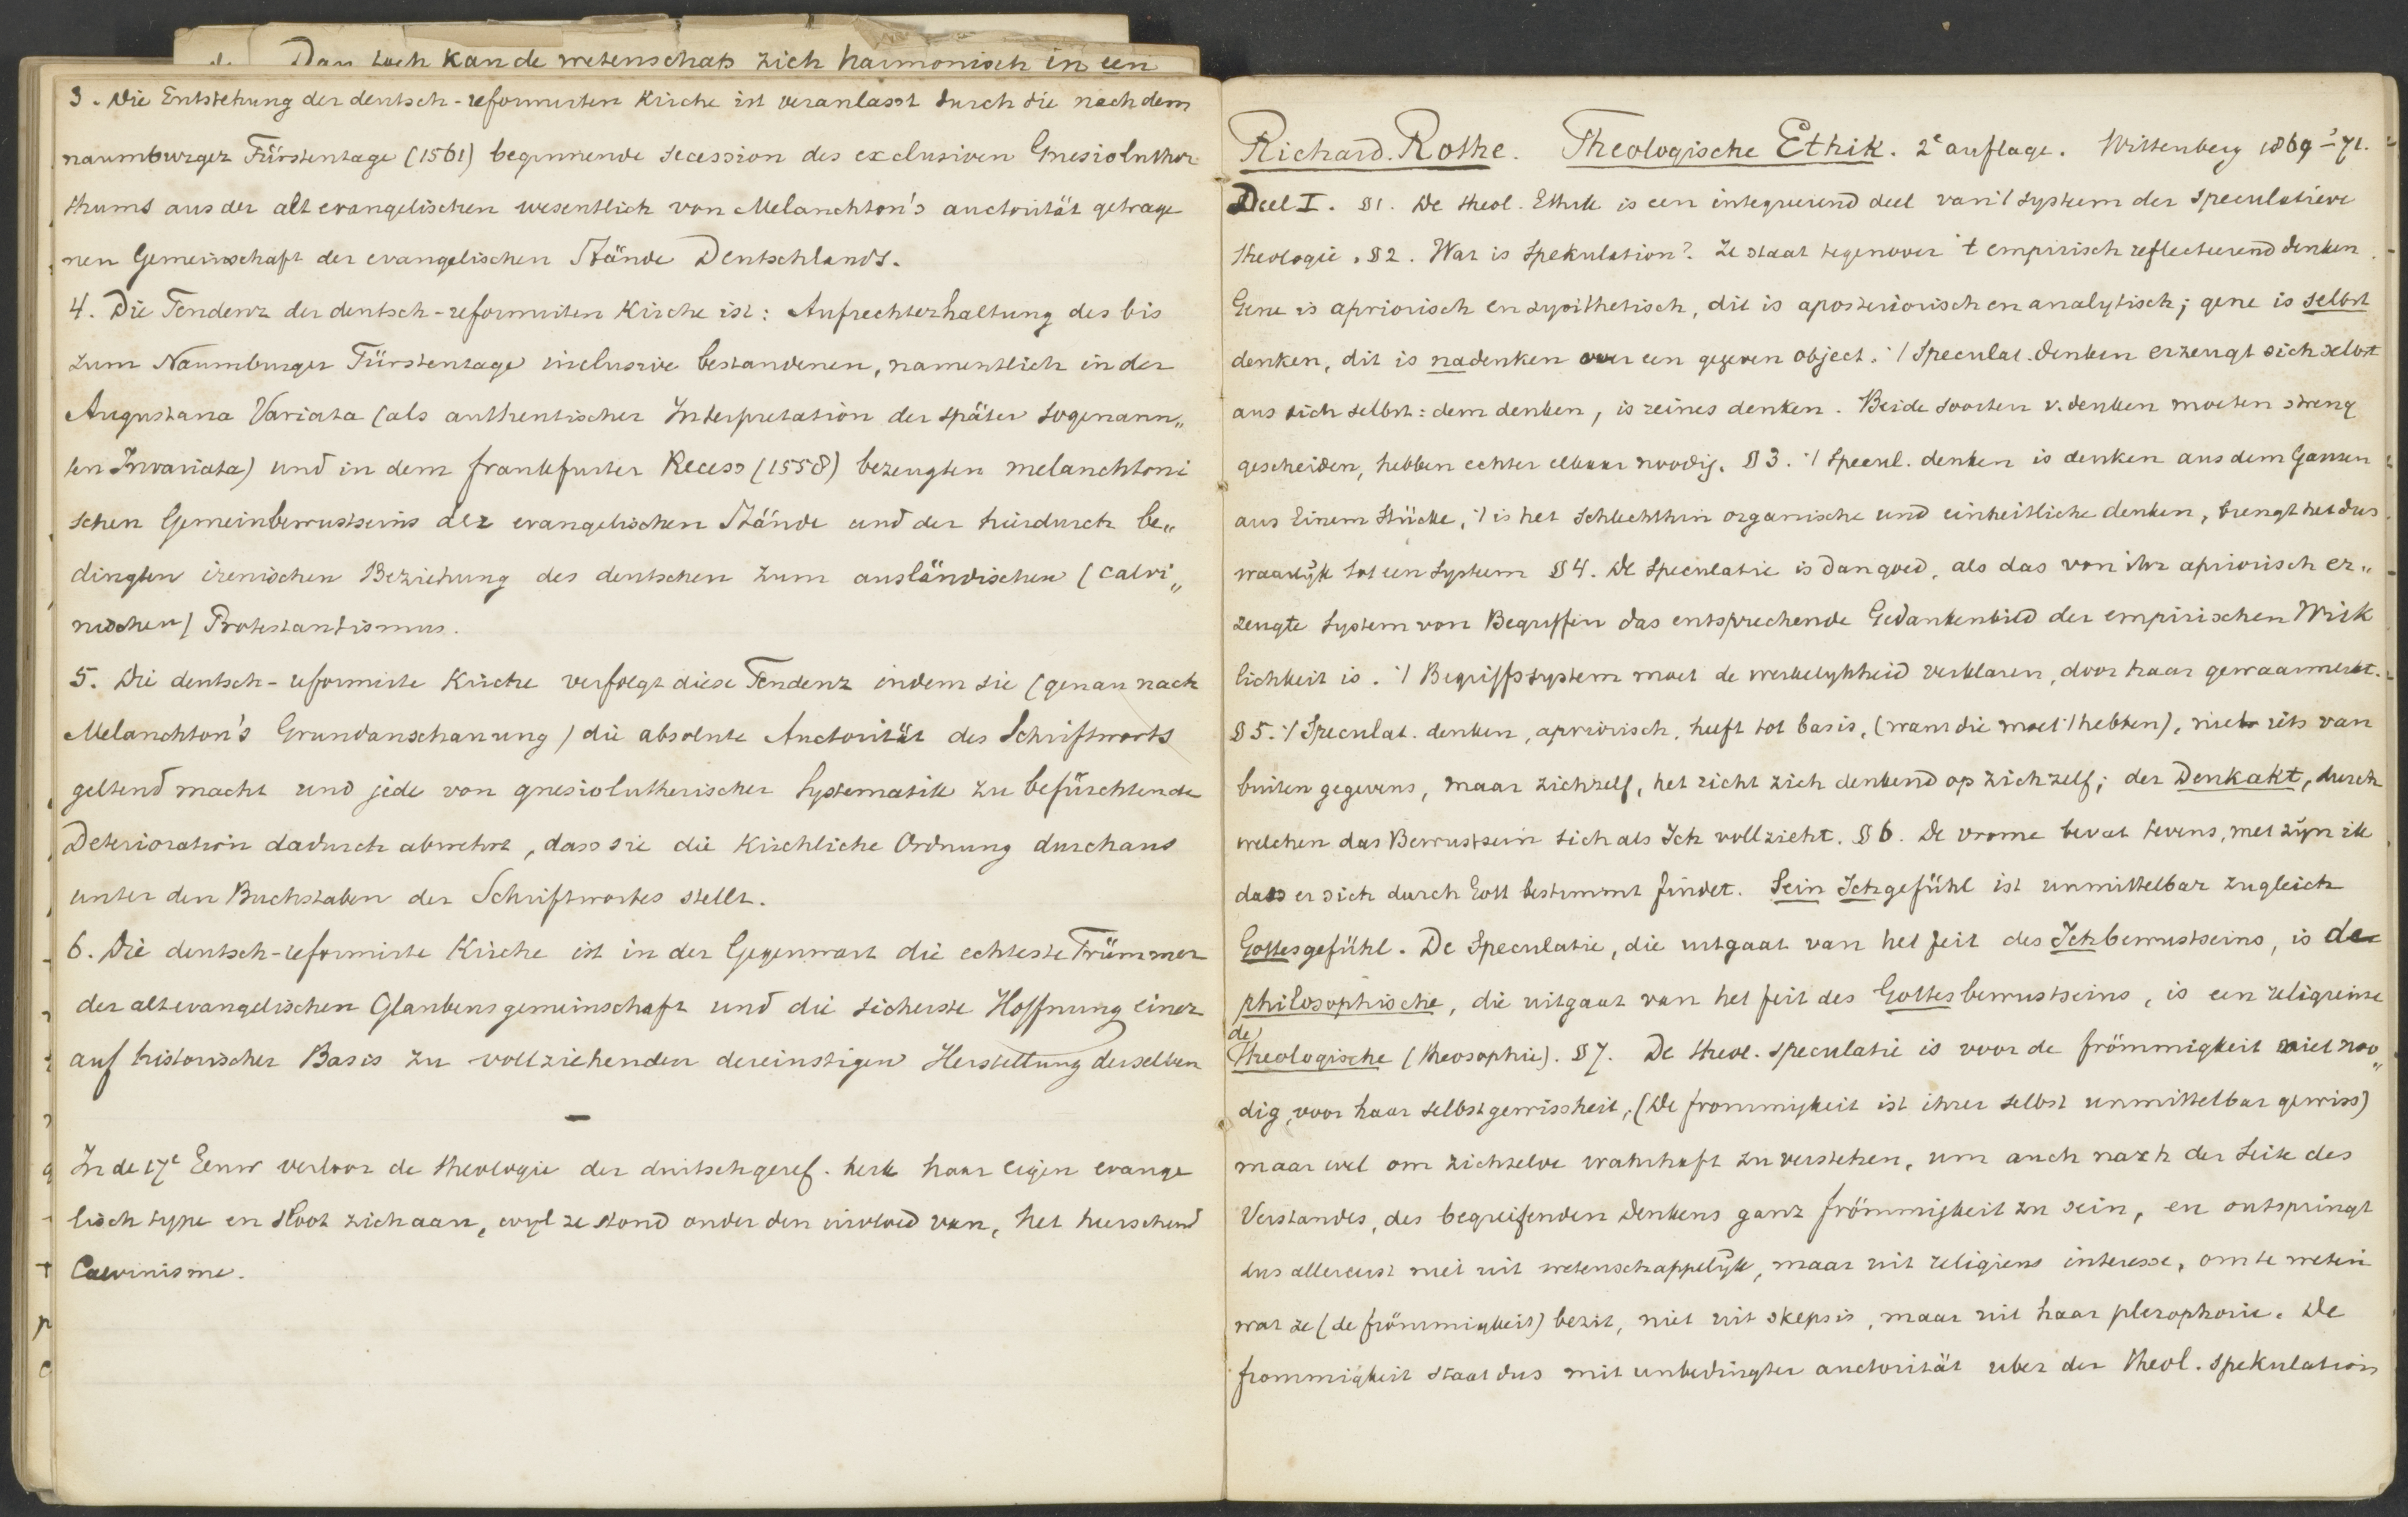 Dan toch kan de wetenschap zich harmonisch in een
3. Die Entstehung der deutsch-reformirten Kirche ist veranlasst durch die nach dem
naumburger Fürstentage (1561) beginnende secession des exclusiven Gnesioluther
thums aus der alt evangelischen wesentlich von Melanchton's auctorität getrage
nen Gemeinschaft der evangelischen Stände Deutschlands.
4. Die Tendenz der deutsch-reformirten Kirche ist: Aufrechterhaltung des bis
zum Naumburger Fürstentage inclusive bestandenen, namentlich in der
Augustana Variata (als authentischer Interpretation der später sogenann„
ten Invariata) und in dem frankfurter Recess (1558) bezeugten melanchtoni
schen Gemeinbewustseins der evangelischen Stände und der hierdurch be„
dingten irenischen Beziehung des deutschen zum ausländischen (calvi„
nischen) Protestantismus.
5. Die deutsch-reformirte Kirche verfolgt diese Tendenz indem sie (genau nach
Melanchton's Grundanschauung) die absolute Auctorität des Schriftworts
geltend macht und jede von gnesiolutherischer Systematik zu befürchtende
Deterioration dadurch abwehrt, dass sie die Kirchliche Ordnung durchaus
unter den Buchstaben des Schriftwortes stellt.
6. Die deutsch-reformirte Kirche ist in der Gegenwart die echteste Trümmer
der altevangelischen Glaubensgemeinschaft und die sicherste Hoffnung einer
auf historischer Basis zu vollziehenden dereinstigen Herstellung derselben
—
In de 17e Eeuw verloor de theologie der duitschgeref. kerk haar eigen evange
lisch type en sloot zich aan, wyl ze stond onder den invloed van, het heerschend
Calvinisme.
Richard Rothe. Theologische Ethik. 2e auflage. Wittenberg 1869-'71.
Deel I. §1. De theol. Ethik is een integreerend deel van 't system der speculatieve
theologie. §2. Wat is Spekulation? Ze staat tegenover 't empirisch reflecteerend denken.
Gene is apriorisch en synthetisch, dit is aposteriorisch en analytisch; gene is selbst
denken, dit is nadenken over een gegeven object. 't Speculat. denken erzeugt sich selbst
aus sich selbst: dem denken, is reines denken. Beide soorten v. denken moeten streng
gescheiden, hebben echter elkaar noodig. §3. 't Specul. denken is denken aus dem Ganzen
aus Einem Stücke, 't is het schlechthin organische und einheitliche denken, brengt het dus
waarlijk tot een system §4. De Speculatie is dan goed, als das von ihr apriorisch er„
zeugte System von Begriffen das entsprechende Gedankenbild der empirischen Wirk
lichkeit is. 't Begriffssystem moet de werkelykheid verklaren, door haar gewaarmerkt.
§5. 't Speculat. denken, apriorisch, heeft tot basis, (want die moet 't hebben), niet iets van
buiten gegevens, maar zichzelf, het richt zich denkend op zichzelf; der Denkakt, durch
welchen das Bewustsein sich als Ich vollzieht. §6. De vrome bevat tevens, met zijn ik
dass er sich durch Gott bestimmt findet. Sein Ichgefühl ist unmittelbar zugleich
Gottesgefühl. De Speculatie, die uitgaat van het feit des Ichbewustseins, is de
philosophische, die uitgaat van het feit des Gottesbewustseins, is een religieuse
de
theologische (theosophie). §7. De theol. speculatie is voor de frömmigkeit niet noo„
dig, voor haar selbstgewissheit, (De frommigkeit ist ihrer selbst unmittelbar gewiss)
maar wel om zichzelve wahrhaft zu verstehen, um auch nach der Seite des
Verstandes, des begreifenden Denkens ganz frömmigkeit zu sein, en ontspringt
dus allereerst niet uit wetenschappelijk, maar uit religieus interesse, om te weten
wat ze (de frömmigkeit) bezit, niet uit skepsis, maar uit haar plerophorie. De
frommigkeit staat dus mit unbedingter auctorität uber der theol. spekulation